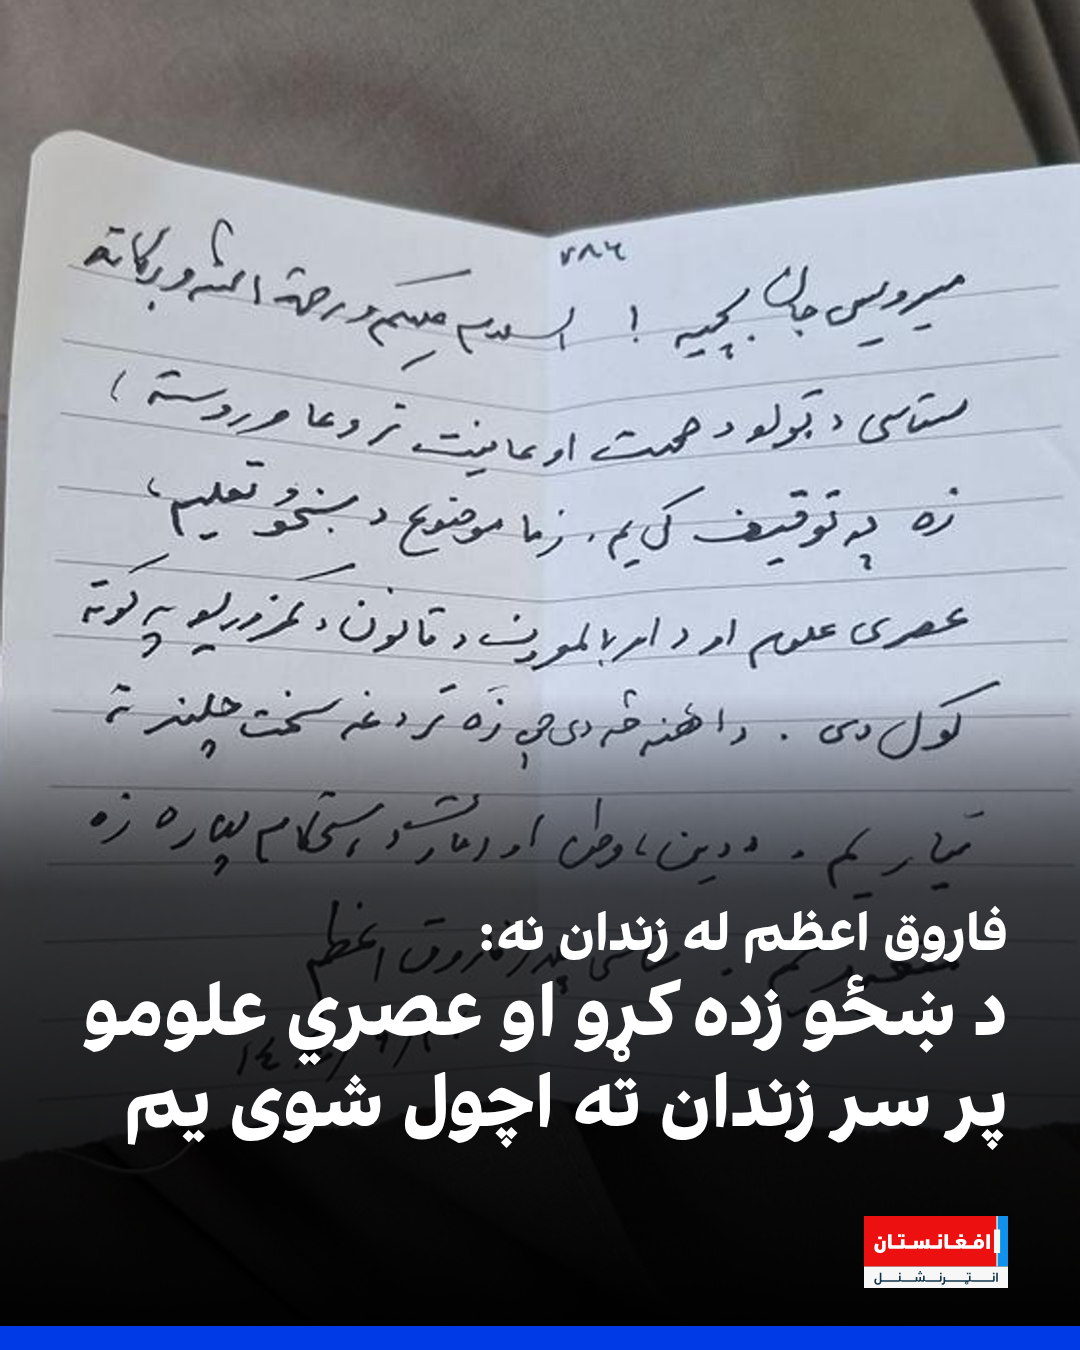 ۷۸۶
میرویس جان بچیه ! السلام علیکم ورحمة الله و برکاته
ستاسی د ټولو د صحت او عافیت تر دعا وروسته ،
زه په توقیف کی یم . زما موضوع د ښځو تعلیم ،
عصری علوم او د امر بالمعروف د قانون د کمزوریو په ګوته
کول دی . دا هغه څه دی چی زه تر دغه سخت چلند ته
تیار یم . د دین ، وطن او امارت د استحکام لپاره زه
یم . ستاسی پدر فاروق اعظم
فاروق اعظم له زندان نه:
د ښځو زده کړو او عصري علومو
پر سر زندان ته اچول شوی یم
افغانستان
انټرنشنل